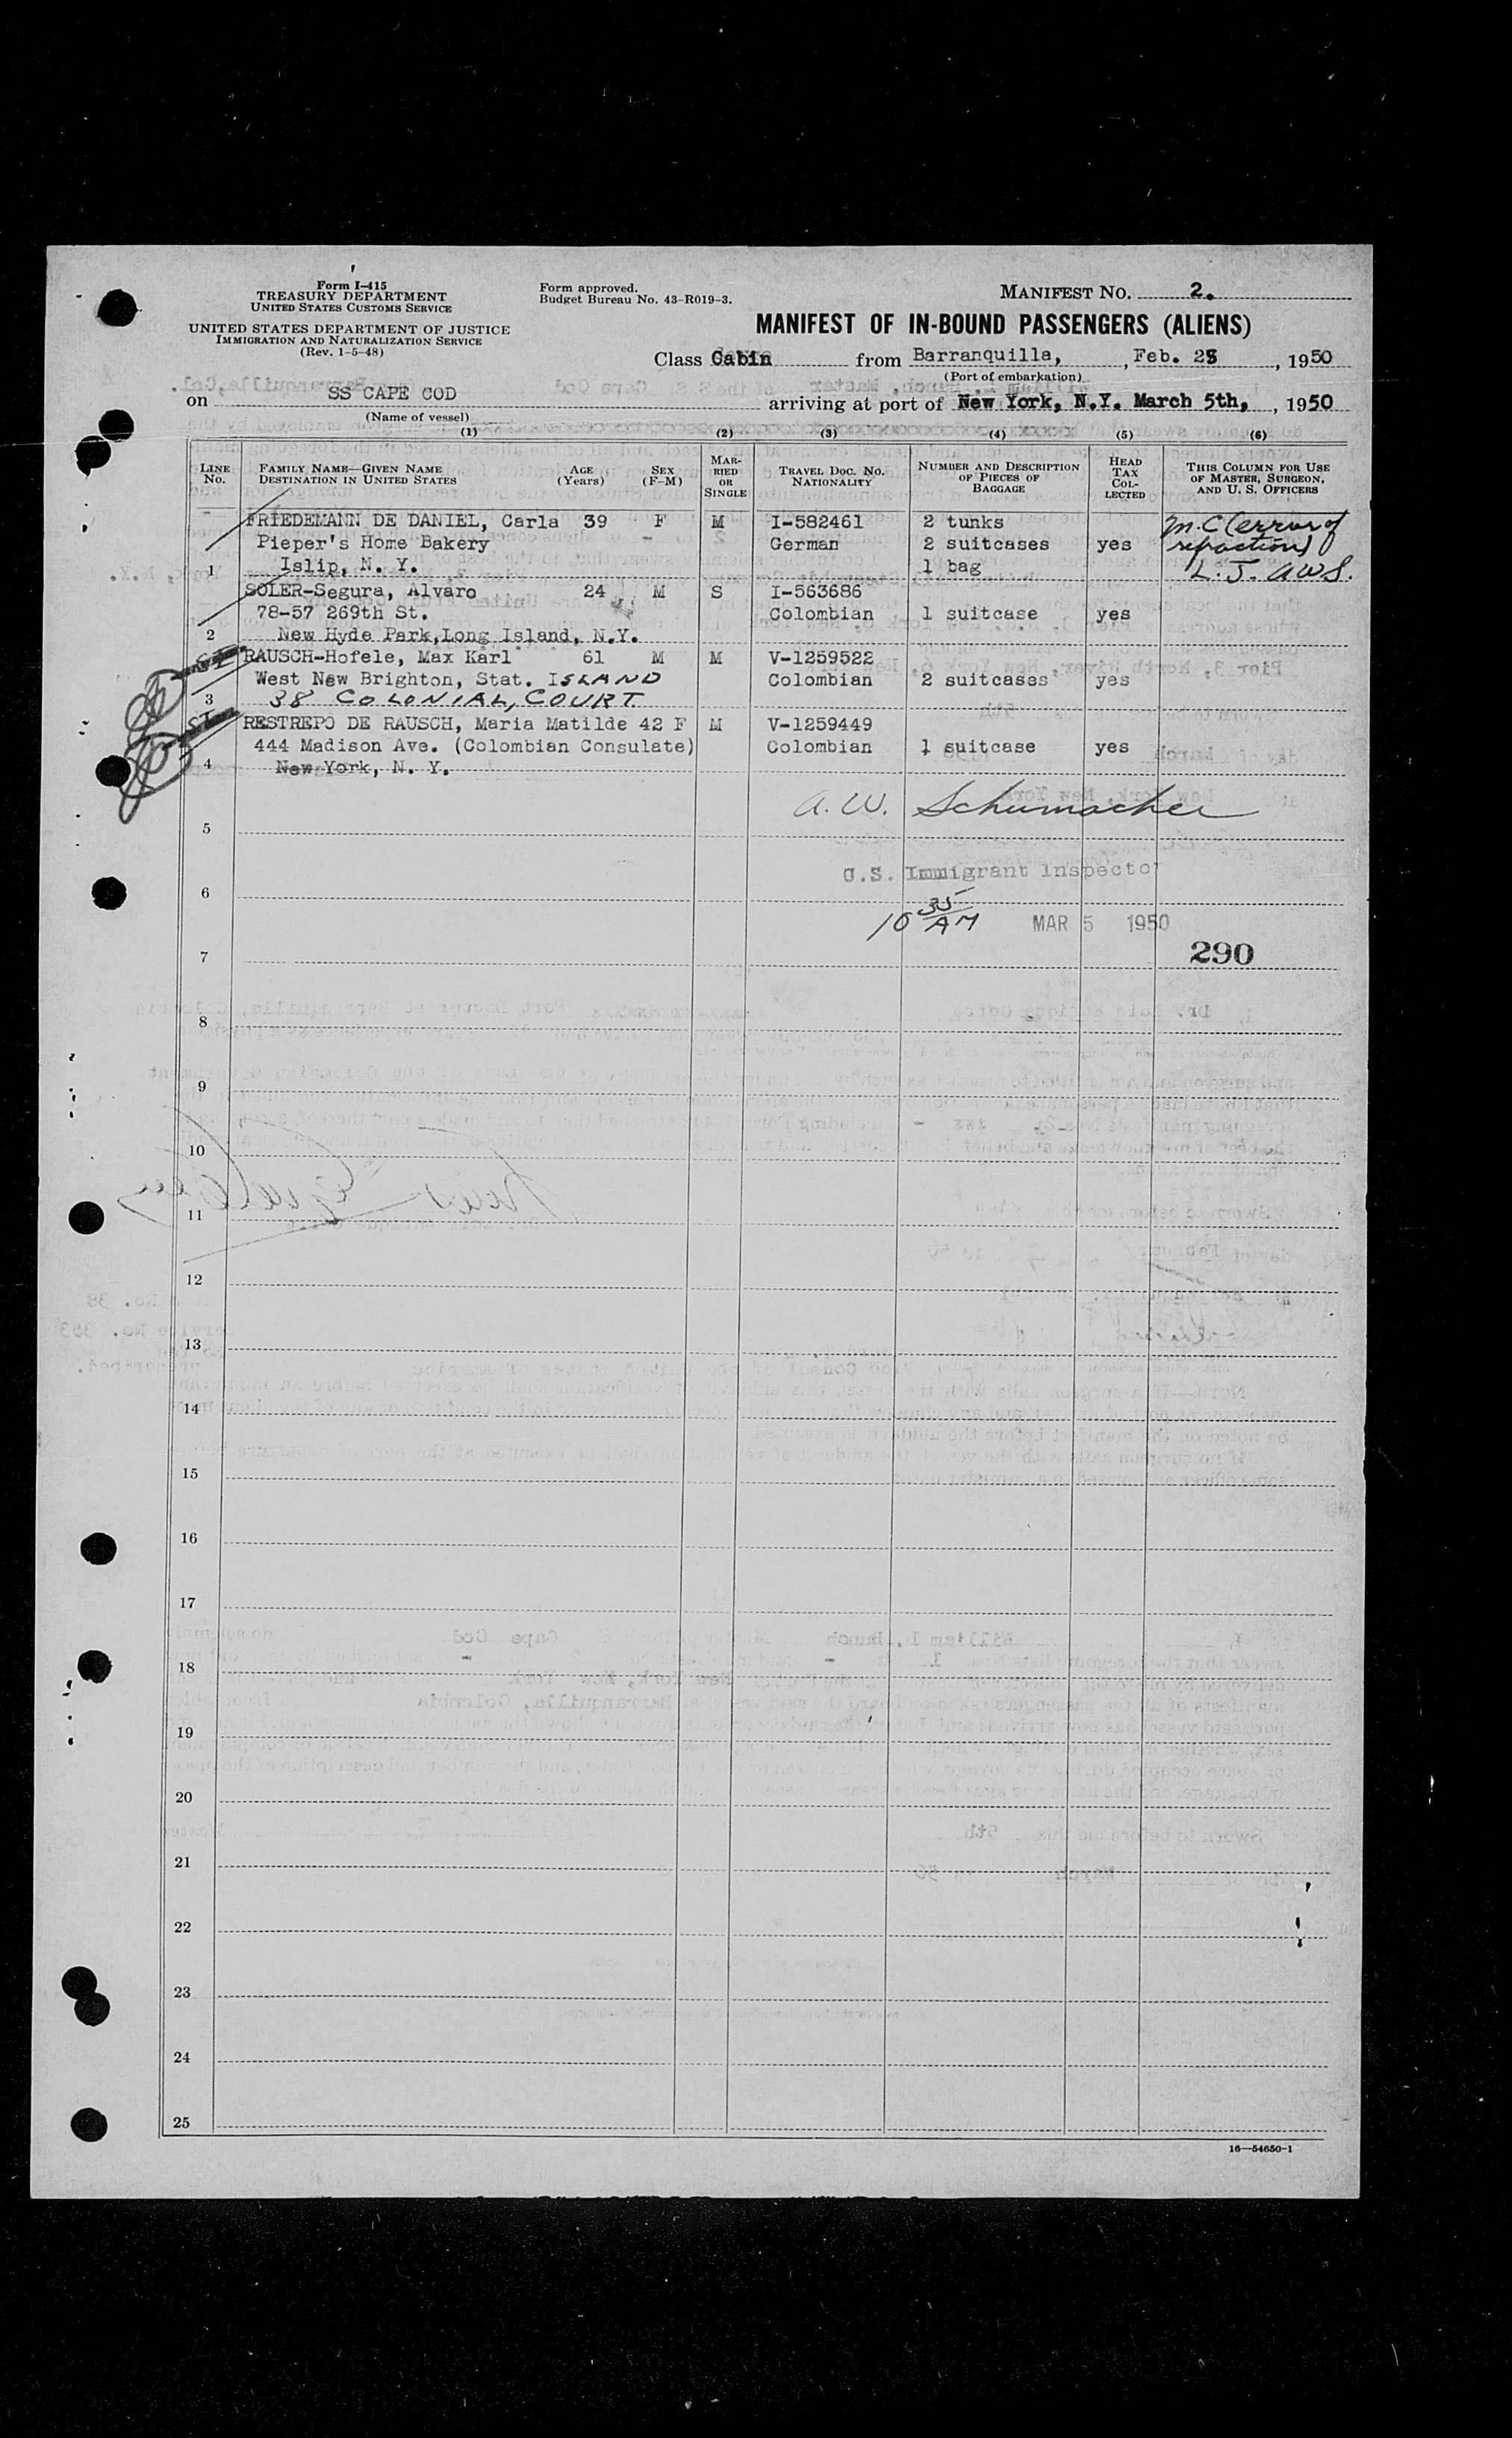 Form I-415
TREASURY DEPARTMENT
UNITED STATES CUSTOMS SERVICE
UNITED STATES DEPARTMENT OF JUSTICE
IMMIGRATION AND NATURALIZATION SERVICE
(Rev. 1-5-48)
Form approved.
Budget Bureau No. 43-R019-3.
MANIFEST NO. 2.
MANIFEST OF IN-BOUND PASSENGERS (ALIENS)
Class Cabin from Barranquilla, , Feb. 25 , 1950
(Port of embarkation)
on SS CAPE COD arriving at port of New York, N.Y. March 5th, , 1950
(Name of vessel)
(1) (2) (3) (4) (5) (6)
LINE No. FAMILY NAME—GIVEN NAME DESTINATION IN UNITED STATES AGE (Years) SEX (F-M) MARRIED OR SINGLE TRAVEL DOC. NO. NATIONALITY NUMBER AND DESCRIPTION OF PIECES OF BAGGAGE HEAD TAX COLLECTED THIS COLUMN FOR USE OF MASTER, SURGEON, AND U. S. OFFICERS
FRIEDEMANN DE DANIEL, Carla 39 F M I-582461 2 tunks M.C (error of
Pieper's Home Bakery German 2 suitcases yes refraction)
1 Islip, N. Y. 1 bag L. J. AWS.
SOLER-Segura, Alvaro 24 M S I-563686
78-57 269th St. Colombian 1 suitcase yes
2 New Hyde Park,Long Island, N.Y.
RAUSCH-Hofele, Max Karl 61 M M V-1259522
West New Brighton, Stat. ISLAND Colombian 2 suitcases yes
3 38 COLONIAL, COURT
RESTREPO DE RAUSCH, Maria Matilde 42 F M V-1259449
444 Madison Ave. (Colombian Consulate) Colombian 1 suitcase yes
4 New York, N. Y.
A. W. Schumacher
5
U.S. Immigrant Inspector
6
10 35 AM MAR 5 1950
290
7
8
9
10
11
12
13
14
15
16
17
18
19
20
21
22
23
24
25
16—54650-1